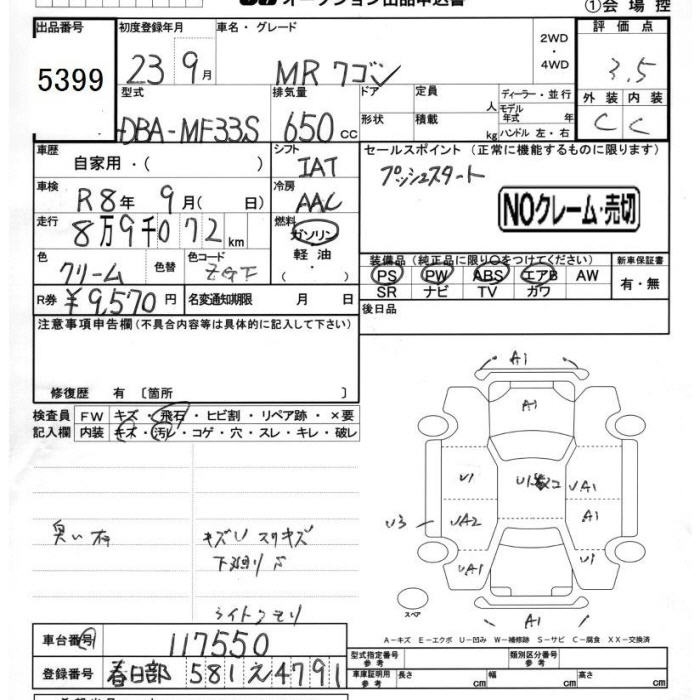 オークション出品申込書
①会場控
出品番号
5399
初度登録年月
23 9月
車名・グレード
MRワゴン
2WD
・
4WD
評価点
3.5
外装 内装
C C
型式
DBA-MF33S
排気量
650 CC
ドア
形状
定員 人
積載 kg
ディーラー・並行
モデル
年式 年
ハンドル 左・右
車歴
自家用・( )
シフト
IAT
セールスポイント (正常に機能するものに限ります)
プッシュスタート
NOクレーム・売切
車検
R8年 9月( 日)
冷房
AAC
走行
8万9千072km
燃料
ガソリン
軽油
・
( )
色
クリーム
色替
色コード
ZGF
装備品 (純正品に限り〇をつけてください)
PS PW ABS エアB AW
SR ナビ TV カワ
新車保証書
有・無
R券
¥9,570円
名変通知期限 月 日
後日品
注意事項申告欄(不具合内容等は具体的に記入して下さい)
修復歴 有 〔箇所 〕
検査員
記入欄
FW キズ・飛石・ヒビ割・リペア跡・×要
内装 キズ・汚レ・コゲ・穴・スレ・キレ・破レ
臭い有
キズU スリキズ
下廻りS
ライトクモリ
A1
A1
U1
U1
UA1
U3
UA2
A1
UA1
U1
A1
スペア
A-キズ E-エクボ U-凹み W-補修跡 S-サビ C-腐食 XX-交換済
車台番号
117550
登録番号
春日部 581 え 4791
型式指定番号
参考
類別区分番号
参考
車庫証明用
参考
長さ cm
幅 cm
高さ cm